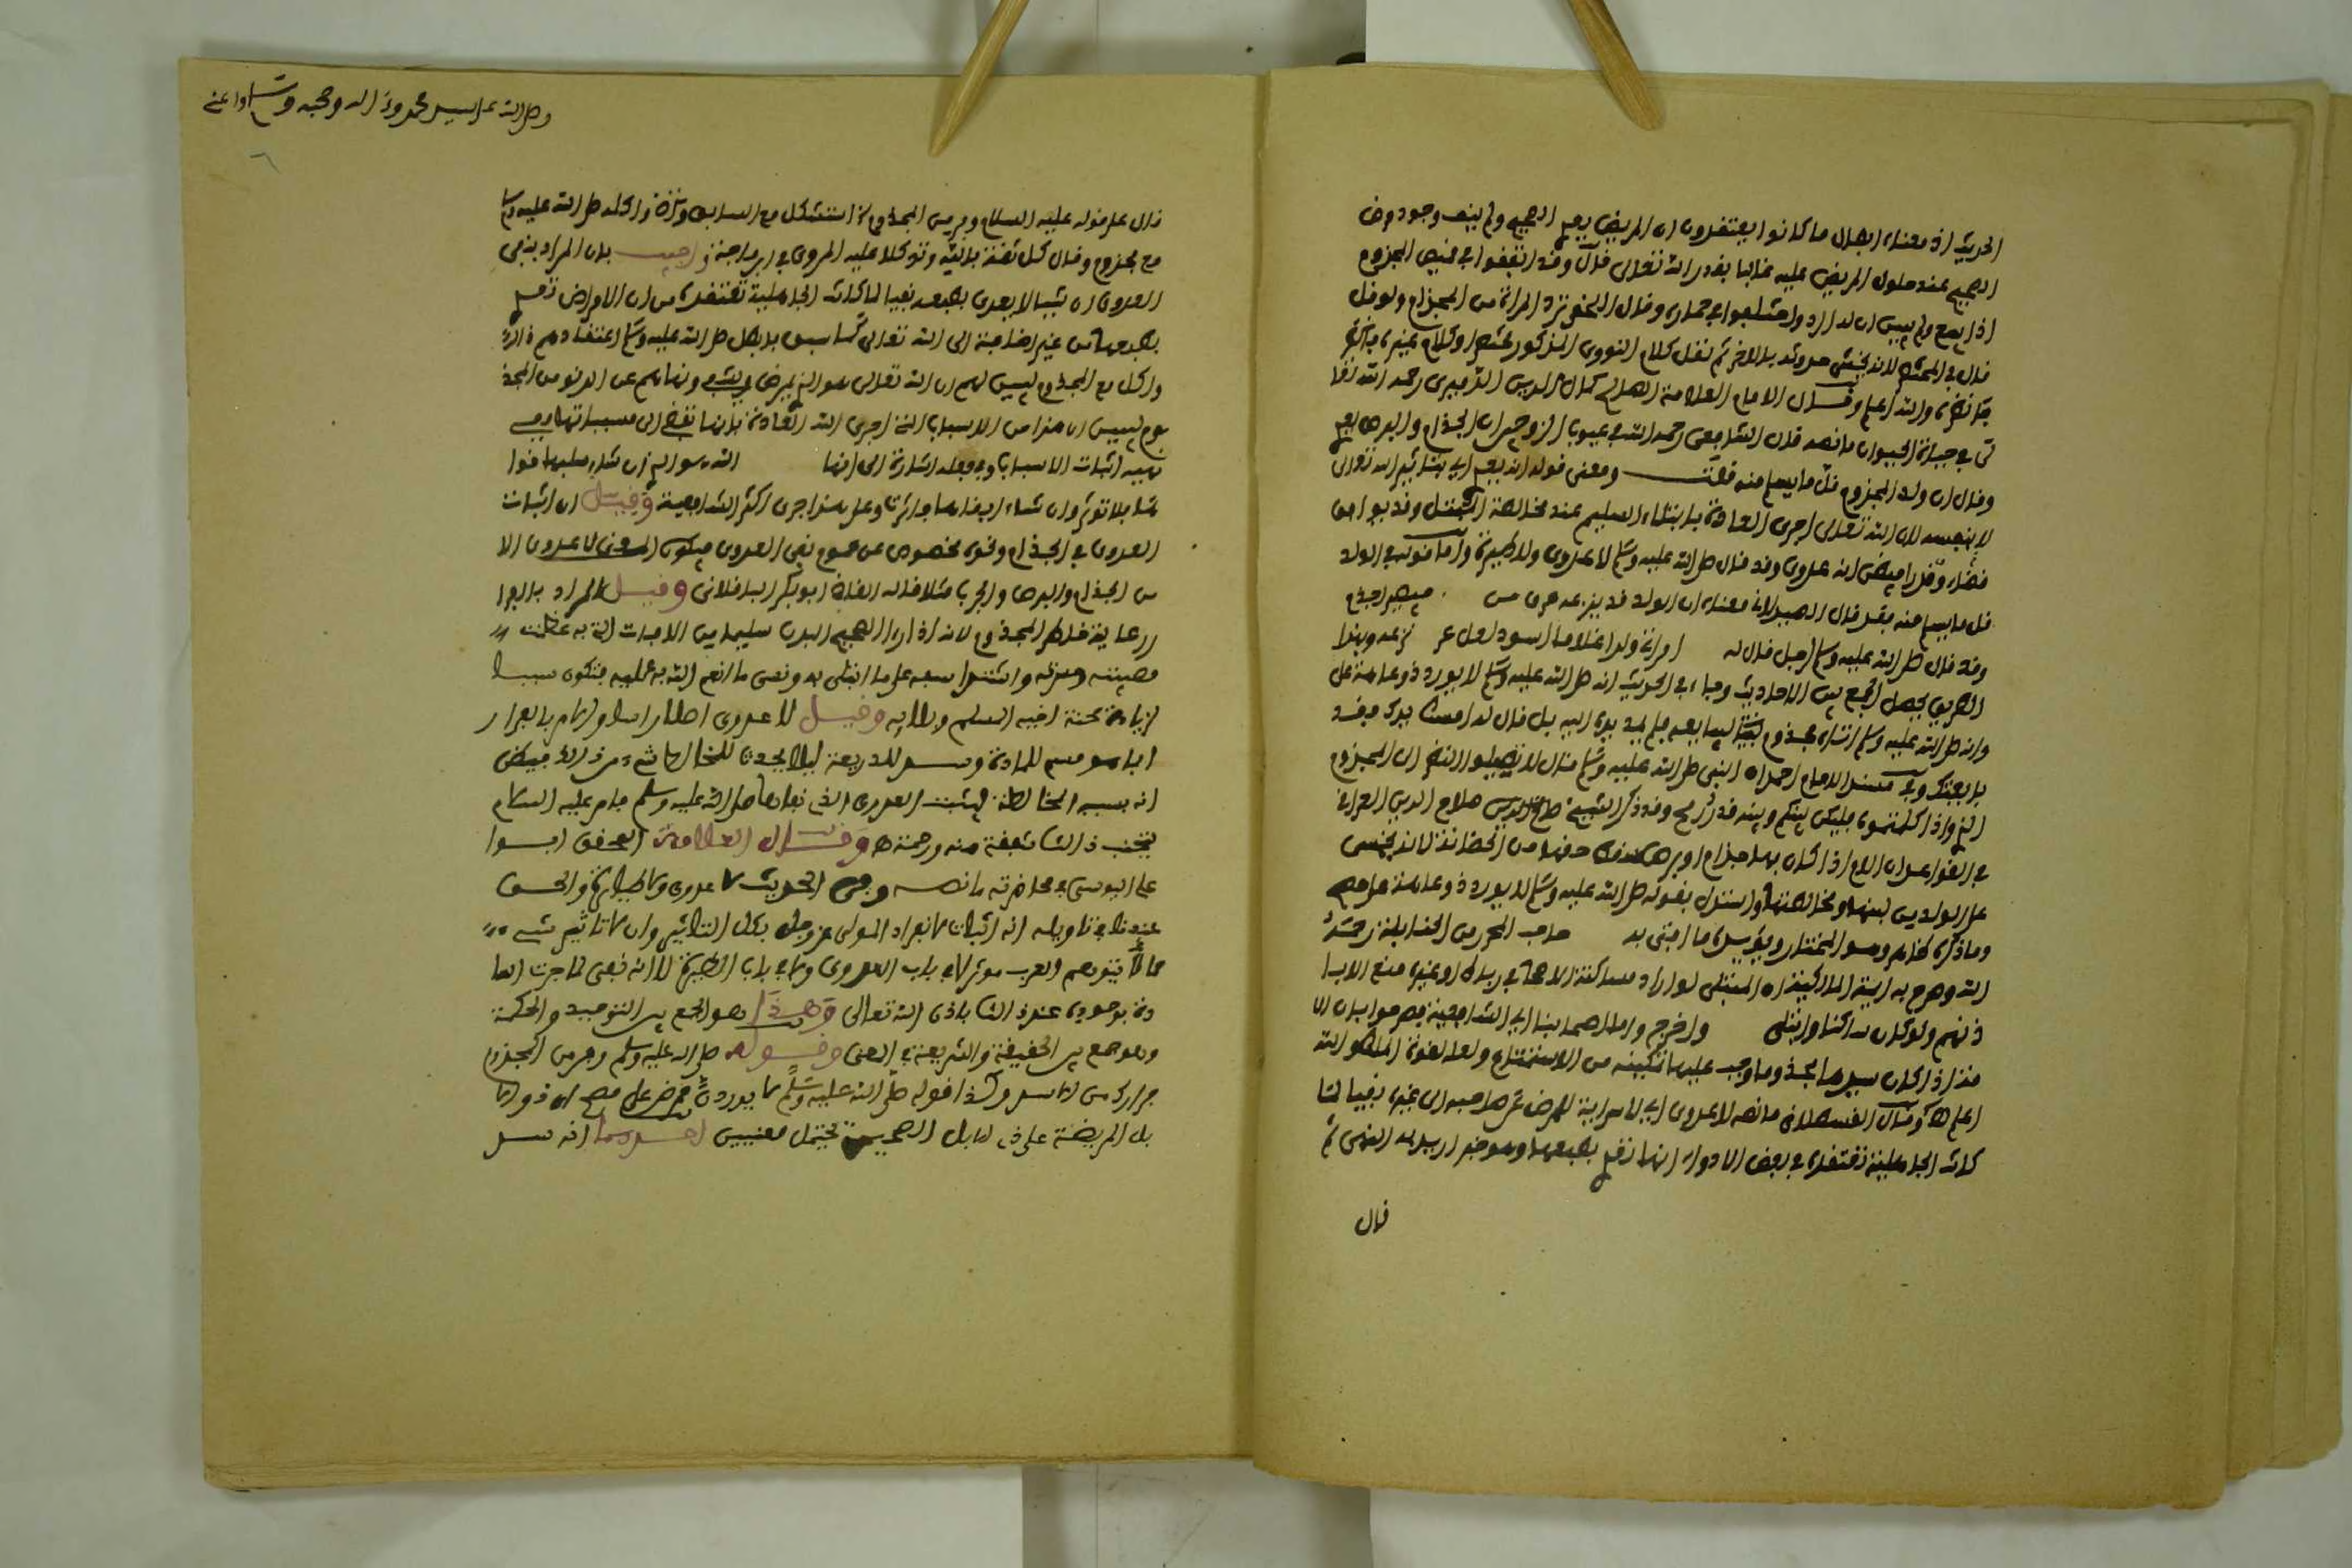 الحديث اذ معناه ابطال ما كانوا يعتقدون ان المريض يعدي الصحيح ولم ينف وجود مرض
الصحيح عند حلول المريض عليه غالبا بقدر الله تعالى قال وقد اتفقوا
قال في لانه يخشى حدوثه بالاخر ثم نقل كلام النووي المذكور وكلام غيره
والله اعلم وقال الامام العلامة كمال الدين الدميري رحمه الله
في حياة الحيوان ما نصه قال الشافعي رحمه الله في عيوب الزوجين ان الجذام والبرص يعدي
وقال ان ولد المجذوم قل ما يسلم منه قلت ومعنى قوله انه يعدي اي بتاثير الله تعالى
لا بنفسه لان الله تعالى اجرى العادة بابتلاء السليم عند مخالطة المبتلى وقد يوافق
قضاء وقدرا فيظن انه عدوى وقد قال صلى الله عليه وسلم لا عدوى ولا طيرة واما قوله في الولد
قل ما يسلم منه فقد قال الصيدلاني معناه ان الولد قد ينزعه عرق من فيصير اجذم
وقد قال صلى الله عليه وسلم لرجل قال له امراتي ولدت غلاما اسود لعل عرقا نزعه وبهذا
الطريق يحصل الجمع بين الاحاديث وجاء في الحديث انه صلى الله عليه وسلم لا يورد ذو عاهة على
وانه صلى الله عليه وسلم اتاه مجذوم ليبايعه فلم يمد يده اليه بل قال له امسك يدك فقد
بايعتك وفي مسند الامام احمد ان النبي صلى الله عليه وسلم قال لا تطيلوا النظر الى المجذوم
واذا كلمتموه فليكن بينكم وبينه قدر رمح وقد ذكر الشيخ صلاح الدين العراقي
في القواعد ان الام اذا كان بها جذام او برص سقط حقها من الحضانة لانه يخشى
على الولد من لبنها ومخالطتها واستدل بقوله صلى الله عليه وسلم لا يورد ذو عاهة على مصح
وما ذكره ظاهر وهو المختار ويؤيده ما افتى به صاحب المحرر من الحنابلة رحمه
الله وصرح به ايمة المالكية ان المبتلى لو اراد مساكنة الاصحاء في رباط او غيره منع الا
باذنهم ولو كان ساكنا وابتلي واخرج واما اصحابنا اي الشافعية فصرحوا بان الا
مة اذا كان سيدها مجذوما وجب عليها تمكينه من الاستمتاع
اعلم وقال القسطلاني ما نصه لا عدوى اي لا سراية للمرض عن صاحبه الى غيره نفيا لما
كانت الجاهلية تعتقده في بعض الادواء انها تعدي بطبعها وهو خبر اريد به النهي ثم
قال

وصلى الله على سيدنا محمد وءاله وصحبه وسلم
قال على قوله عليه السلام وفر من المجذوم استشكل مع السابق واكله صلى الله عليه وسلم
مع مجذوم وقال كل ثقة بالله وتوكلا عليه المروي في ابن ماجة واجيب بان المراد بنفي
العدوى ان شيئا لا يعدي بطبعه نفيا لما كانت الجاهلية تعتقده من ان الامراض تعدي
بطبعها من غير اضافة الى الله تعالى كما سبق فابطل صلى الله عليه وسلم اعتقادهم ذلك
واكل مع المجذوم ليبين لهم ان الله تعالى هو الذي يمرض ويشفي ونهاهم عن الدنو من المجذ
وم ليبين ان هذا من الاسباب التي اجرى الله العادة بانها تفضي الى مسبباتها ففي
نهيه اثبات الاسباب وفي فعله اشارة الى انها الله هو الذي ان شاء سلبها قوا
ها فلا تؤثر وان شاء ابقاها فاثرت وعلى هذا جرى اكثر الشافعية وقيل ان اثبات
العدوى في الجذام ونحوه مخصوص من عموم نفي العدوى فيكون المعنى لا عدوى الا
من الجذام والبرص والجرب مثلا قاله القاضي ابوبكر الباقلاني وقيل المراد بالفرا
ر رعاية خاطر المجذوم لانه اذا راى الصحيح البدن سليما من الافات التي به عظمت
مصيبته وحزنه واشتد اسفه على ما ابتلي به ونسي ما انعم الله به عليه فتكون سببا
لزيادة محنة اخيه المسلم وبلايه وقيل لا عدوى اصلا راسا والامر بالفرار
انما هو حسم للمادة وسد للذريعة ليلا يحدث للمخالط شيء من ذلك فيظن
انه بسبب المخالطة فيثبت العدوى التي نفاها صلى الله عليه وسلم فامر عليه السلام
بتجنب ذلك شفقة منه ورحمة وقال العلامة المحقق ابوا
علي اليوسي في محاضرته ما نصه وفي الحديث لا عدوى ولا طيرة والحق
عندنا في تاويله انه اثبات لانفراد المولى عز وجل بكل التاثير وان لا تاثير لشيء
مما تتوهم العرب موثرا لا في باب العدوى ولا في باب الطيرة لا انه نفي لما جرت العا
دة بوجوده عند ذلك باذن الله تعالى وهذا هو الجمع بين التوحيد والحكمة
وهو جمع بين الحقيقة والشريعة في المعنى وقوله صلى الله عليه وسلم وفر من المجذوم
فرارك من الاسد وكذا قوله صلى الله عليه وسلم لا يوردن ممرض على مصح اي ذو الا
بل المريضة على ذي الابل الصحيحة يحتمل معنيين احدهما انه سد